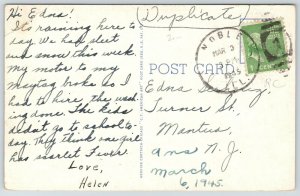 Hi Edna!
It's raining here to-
day. We had sleet
and snow this week.
My motor to my
Maytag broke so I
had to hire the wash-
ing done. The kids
didn't go to school to-
day. They think one girl
has scarlet Fever!
Love,
Helen
(Duplicate)
POST CARD
MAR
Edna
Turner St.
Mantua,
N. J.
March
6, 1945.